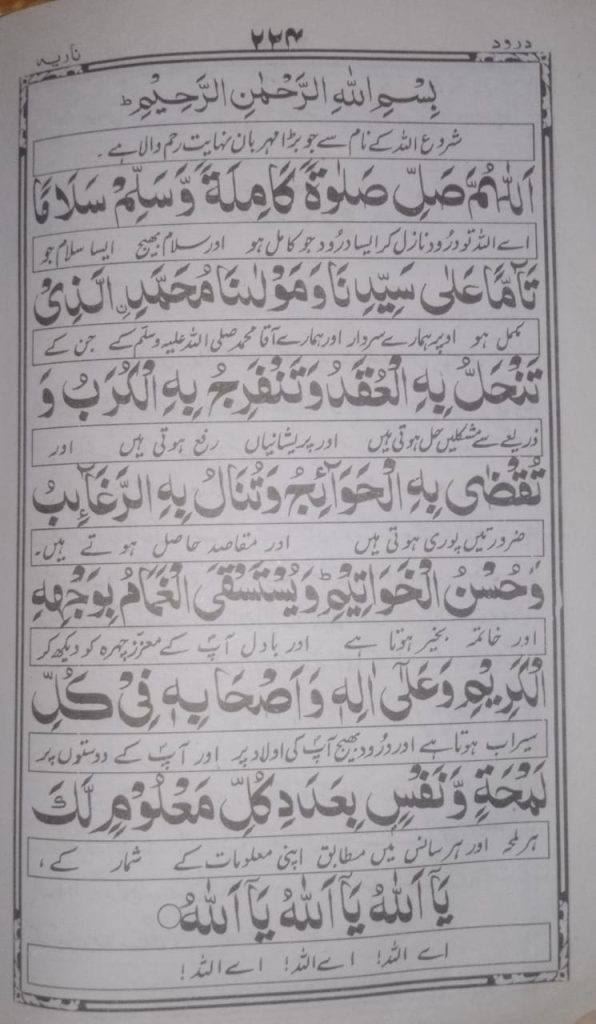 درود
۲۲۴
ناریہ
بِسْمِ اللهِ الرَّحْمٰنِ الرَّحِيْمِ ط
شروع اللہ کے نام سے جو بڑا مہربان نہایت رحم والا ہے۔
اَللّٰهُمَّ صَلِّ صَلٰوةً كَامِلَةً وَّسَلِّمْ سَلَامًا
اے اللہ تو درُود نازل کر ایسا درُود جو کامل ہو اور سلام بھیج ایسا سلام جو
تَآمًّا عَلٰى سَيِّدِنَا وَمَوْلٰىنَا مُحَمَّدِ نِ الَّذِىْ
مکمل ہو اوپر ہمارے سردار اور ہمارے آقا محمد صلی اللہ علیہ وسلم کے جن کے
تَنْحَلُّ بِهِ الْعُقَدُ وَتَنْفَرِجُ بِهِ الْكُرَبُ وَ
ذریعے سے مشکلیں حل ہوتی ہیں اور پریشانیاں رفع ہوتی ہیں اور
تُقْضٰى بِهِ الْحَوَآئِجُ وَتُنَالُ بِهِ الرَّغَآئِبُ
ضرورتیں پوری ہوتی ہیں اور مقاصد حاصل ہوتے ہیں۔
وَحُسْنُ الْخَوَاتِيْمِ ط وَيُسْتَسْقَى الْغَمَامُ بِوَجْهِهِ
اور خاتمہ بخیر ہوتا ہے اور بادل آپؐ کے معزز چہرہ کو دیکھ کر
الْكَرِيْمِ وَعَلٰٓى اٰلِهٖ وَاَصْحَابِهٖ فِىْ كُلِّ
سیراب ہوتا ہے اور درُود بھیج آپؐ کی اولاد پر اور آپؐ کے دوستوں پر
لَمْحَةٍ وَّنَفَسٍ بِعَدَدِ كُلِّ مَعْلُوْمٍ لَّكَ
ہر لمحہ اور ہر سانس میں مطابق اپنی معلومات کے شمار کے،
يَآ اَللهُ يَآ اَللهُ يَآ اَللهُ ○
اے اللہ! اے اللہ! اے اللہ!